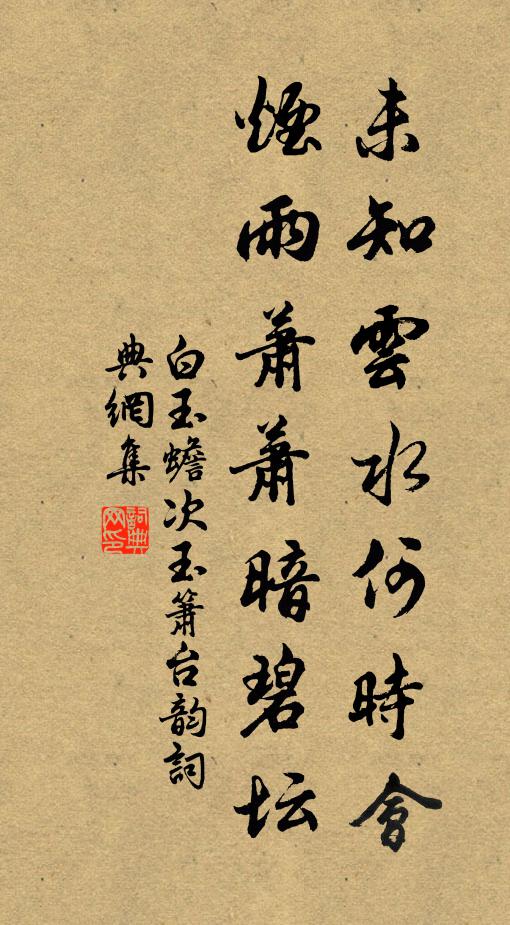 未知雲水何時會
煙雨蕭蕭暗碧坛
白玉蟾次玉簫台韵詞
典網集
詞典
网印